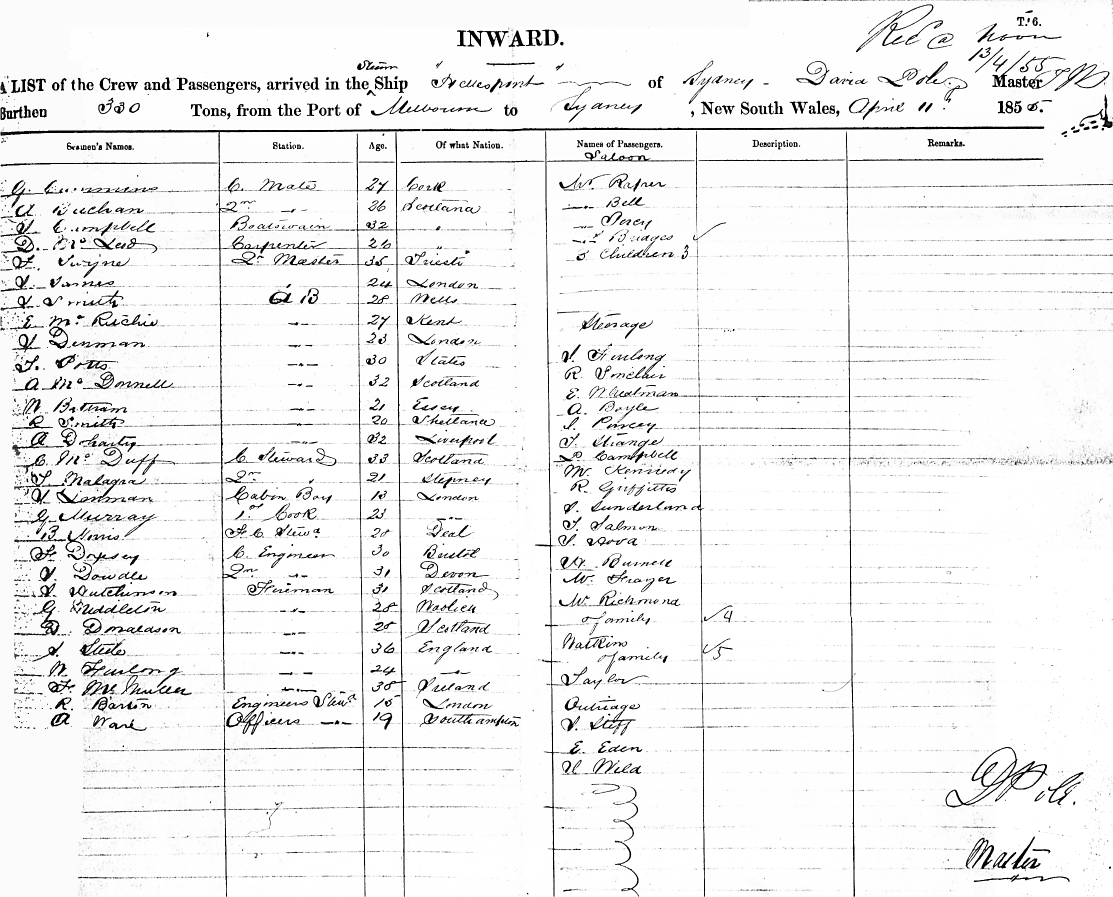 T. 6.
INWARD.
Rec @ Noon
13/4/55
A LIST of the Crew and Passengers, arrived in the Steam Ship of Sydney - David Pole Master
Burthen 330 Tons, from the Port of Melbourne to Sydney, New South Wales, April 11th 1855.
Seamen's Names. Station. Age. Of what Nation. Names of Passengers. Description. Remarks.
Saloon
G. Cummins C. Mate 27 Cork
A Buchan 2nd " 26 Scotland
J Campbell Boatswain 32 "
D. McLeod Carpenter 26 "
F. Swyne 2r Master 35 Trieste
J. James 24 London
J Smith A B 28 Wells
E McRitchie " 27 Kent
J Denman " 23 London
F. Potts " 30 States
A McDonnell " 32 Scotland
W Bertram " 21 Essex
R Smith " 20 Shetland
A Doharty " 32 Liverpool
C McDuff C Steward 33 Scotland
F Malagra 2nd " 21 Stepney
J Lenman Cabin Boy 18 London
G Murray 1st Cook 23 "
B Norris F. C. Stewd 20 Deal
C. Engineer 30 Bristol
J Dowdle 2nd " 31 Devon
J Hutchinson Fireman 31 Scotland
G Middleton " 28
D Donaldson " 25 Scotland
J. Steele " 36 England
W Furlong " 24 "
F McMullen " 38 Ireland
R. Barton Engineers Stewd 15 London
A Ware Officers " 19 Southampton
Mr Raper
" Bell
"
" Bridges
3 Children 3
Steerage
J. Furlong
R. Sinclair
E. Weatman
A. Boyle
J. Purcey
T. Strange
D Campbell
M. Kennedy
R. Griffiths
J. Sunderland
J. Salmon
J. Nova
W. Burnell
W. Frazer
W Richmond
& family 4
Watkins
& family 5
Taylor
Outridge
J. Steff
E. Eden
H Wild
D Pole.
Master